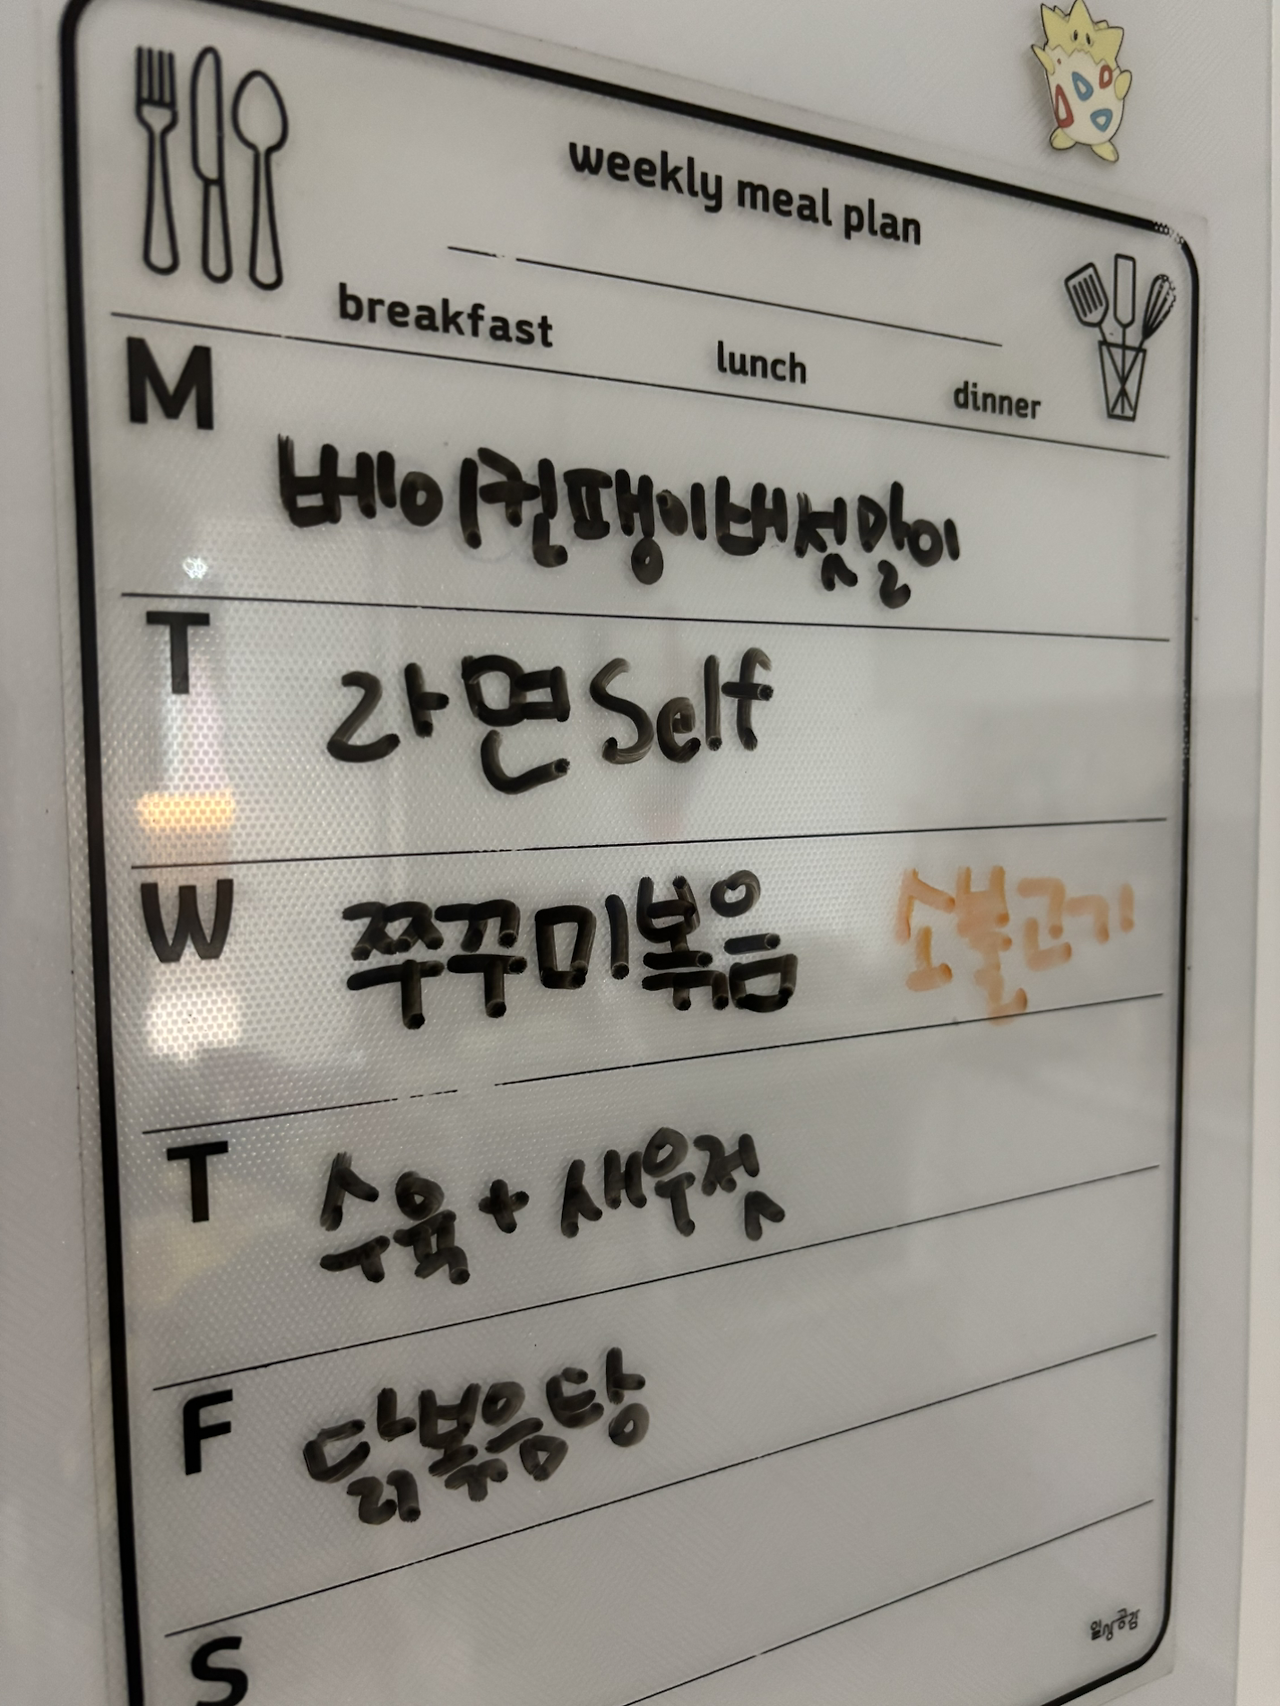 weekly meal plan
breakfast lunch dinner
M
베이컨팽이버섯말이
T
라면 Self
W
쭈꾸미볶음 소불고기
T
수육 + 새우젓
F
닭볶음탕
S
일상공감